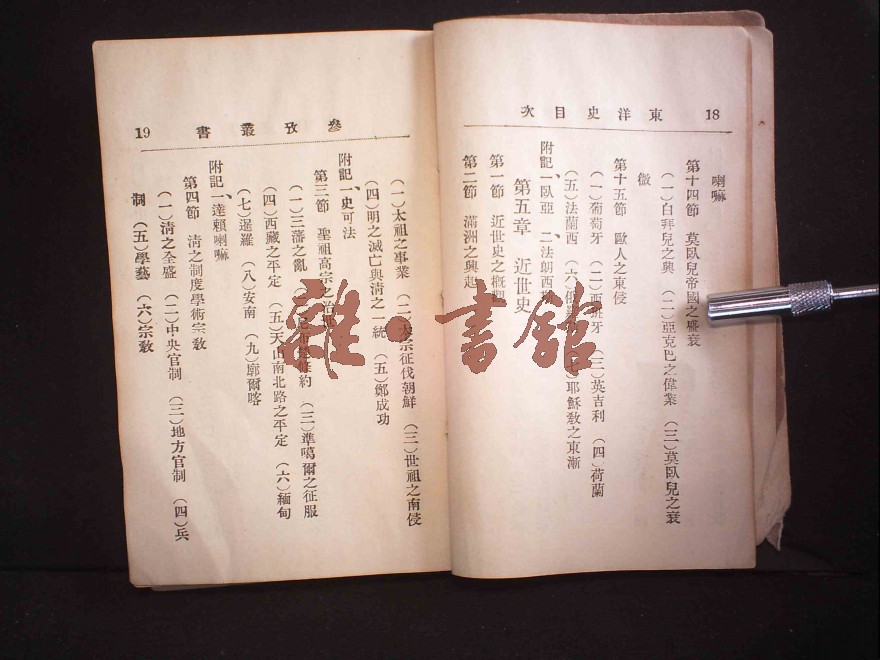 東洋史目次 18
喇嘛
第十四節 莫臥兒帝國之盛衰
(一)白拜兒之興 (二)亞克巴之偉業 (三)莫臥兒之衰
微
第十五節 歐人之東侵
(一)葡萄牙 (二)西班牙 (三)英吉利 (四)荷蘭
(五)法蘭西 (六) (七)耶穌教之東漸
附記一、臥亞 二、法朗西
第五章 近世史
第一節 近世史之概
第二節 滿洲之興起
參攷叢書 19
(一)太祖之事業 (二)太宗征伐朝鮮 (三)世祖之南侵
(四)明之滅亡與淸之一統 (五)鄭成功
附記一、史可法
第三節 聖祖高宗之治
(一)三藩之亂 條約 (三)準噶爾之征服
(四)西藏之平定 (五)天山南北路之平定 (六)緬甸
(七)暹羅 (八)安南 (九)廓爾喀
附記一、達賴喇嘛
第四節 淸之制度學術宗敎
(一)淸之全盛 (二)中央官制 (三)地方官制 (四)兵
制 (五)學藝 (六)宗敎
雜·書館